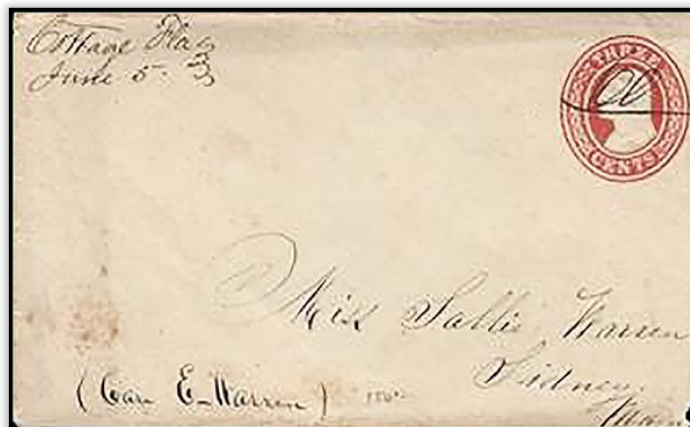 Cottage Fla
June 5
THREE
CENTS
Miss Sallie Warren
Sidney
(Care E. Warren)